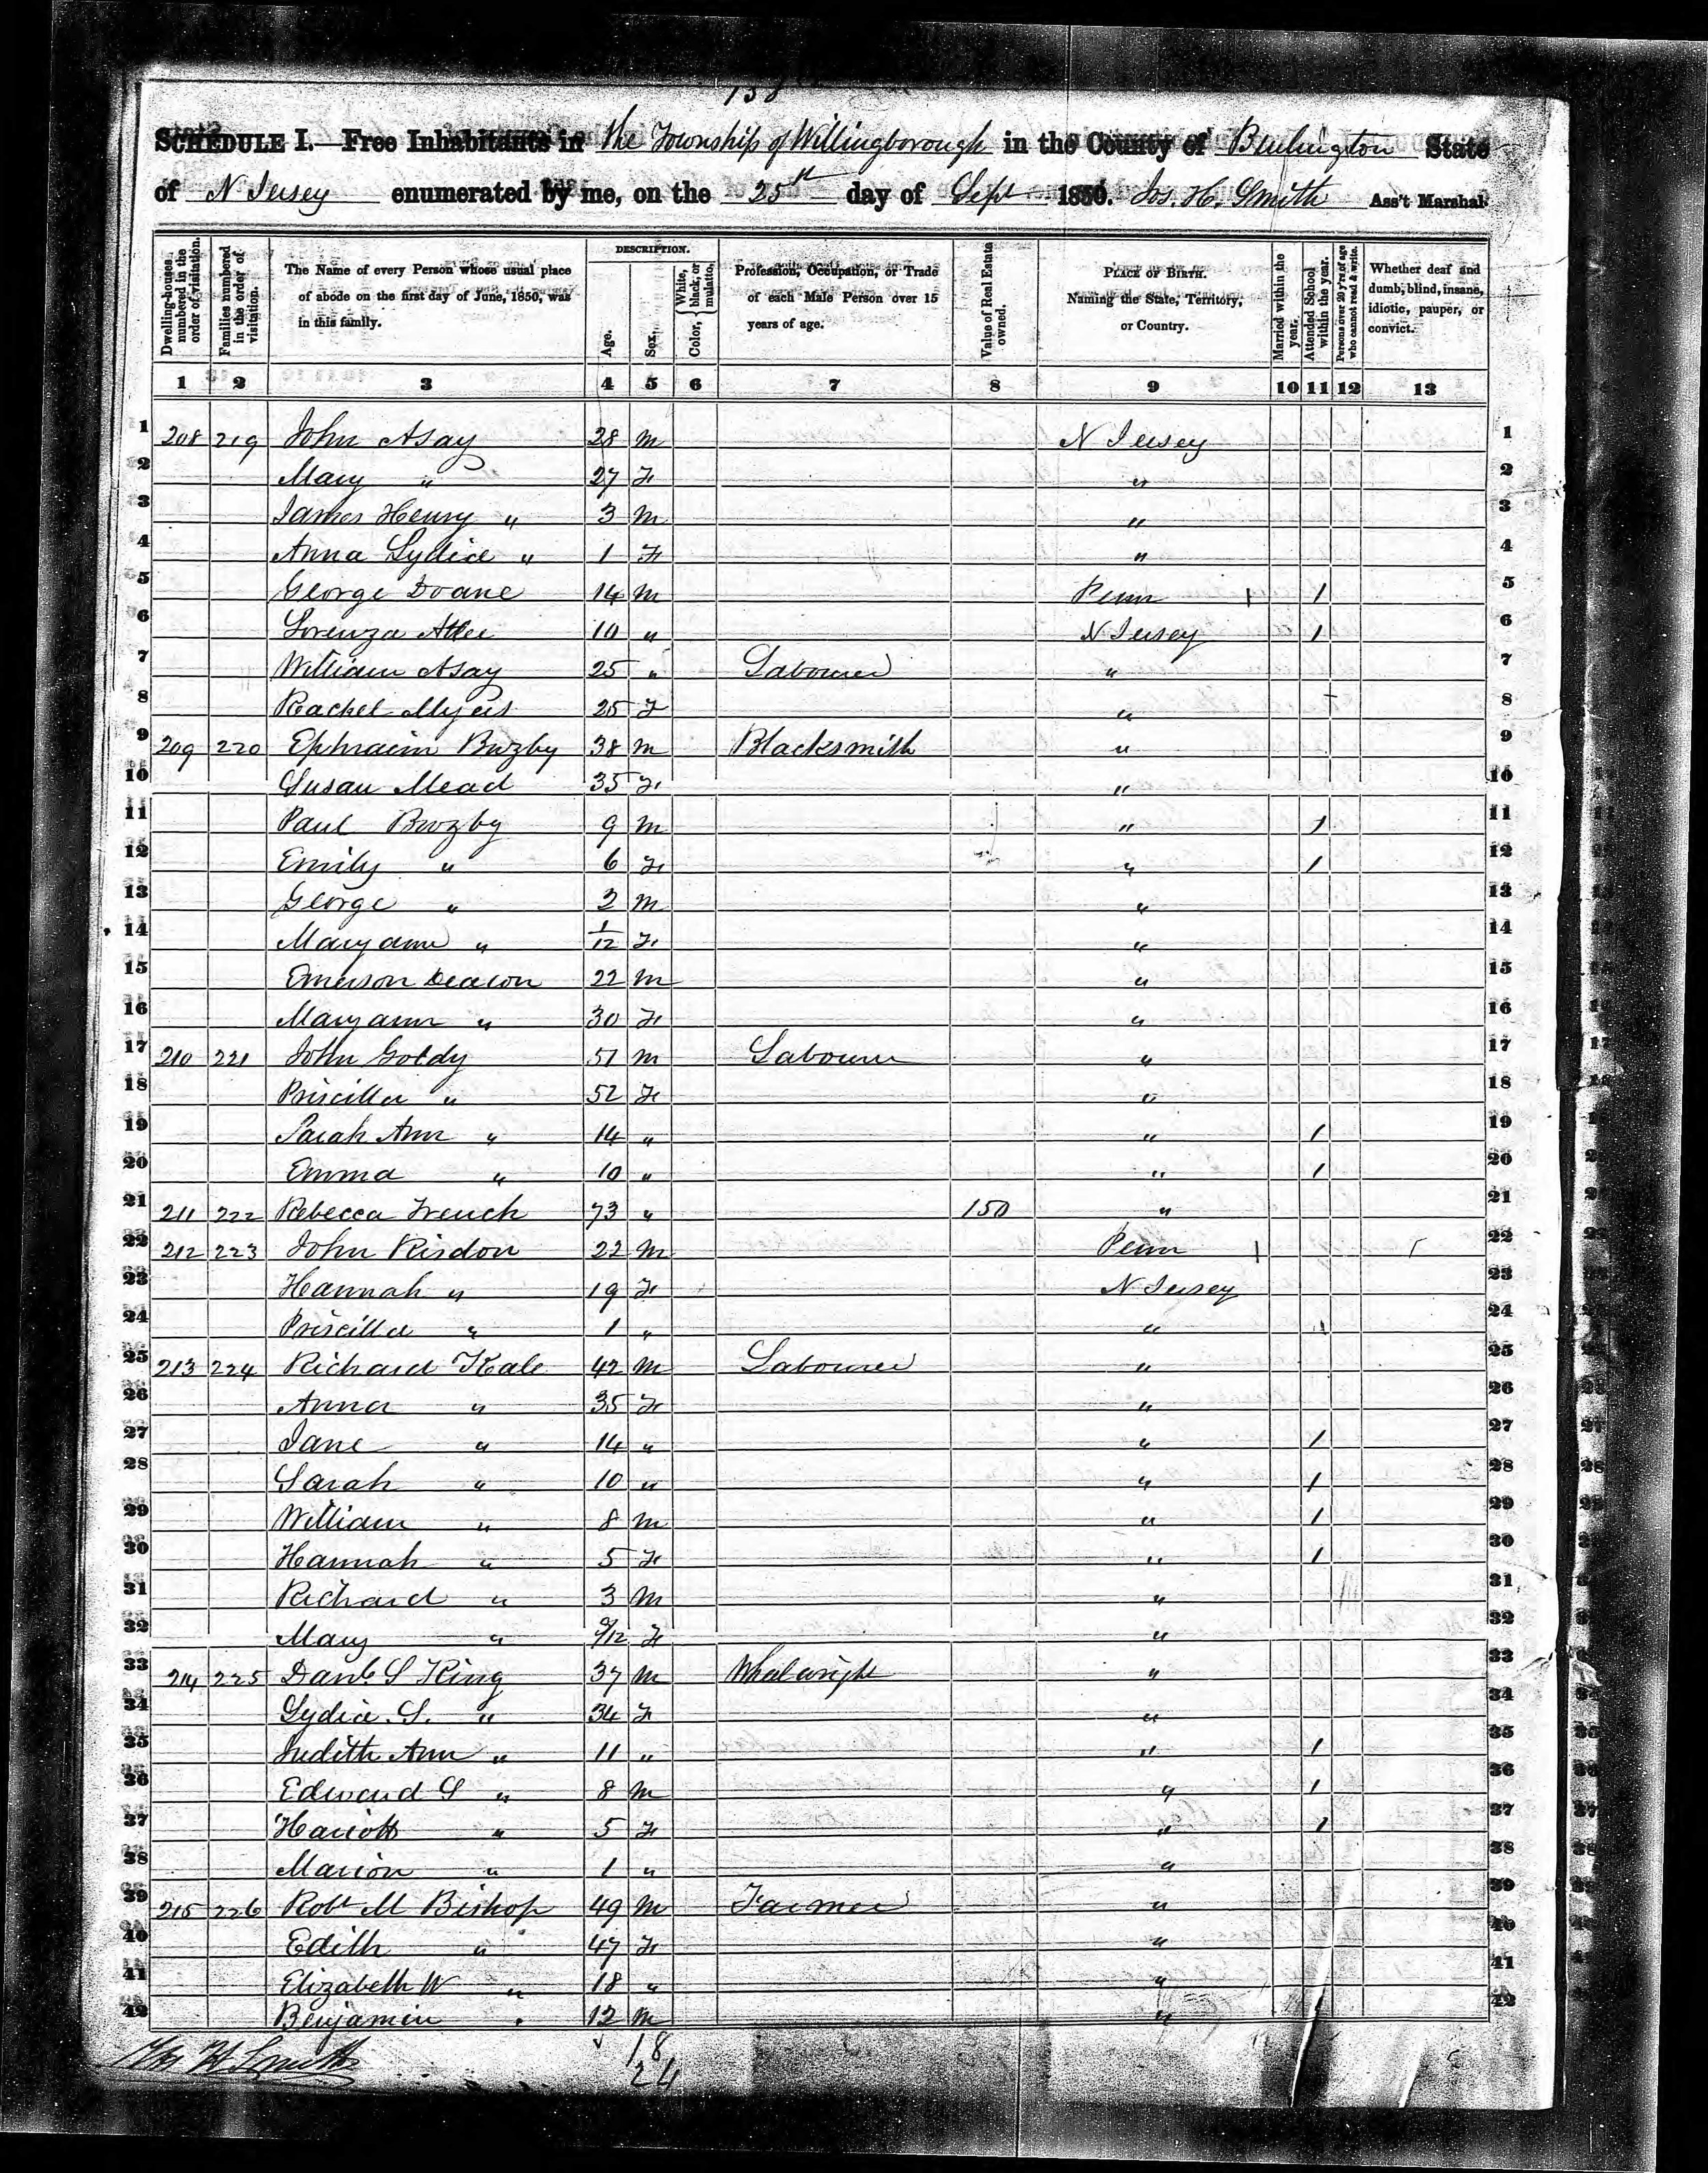 SCHEDULE I.—Free Inhabitants in the Township of Willingborough in the County of Burlington State
of N Jersey enumerated by me, on the 25st day of Sept 1850. Jos. H. Smith Ass't Marshal.
Dwelling-houses numbered in the order of visitation.
Families numbered in the order of visitation.
The Name of every Person whose usual place of abode on the first day of June, 1850, was in this family.
DESCRIPTION.
Age.
Sex.
Color, { White, black, or mulatto.
Profession, Occupation, or Trade of each Male Person over 15 years of age.
Value of Real Estate owned.
PLACE OF BIRTH. Naming the State, Territory, or Country.
Married within the year.
Attended School within the year.
Persons over 20 y'rs of age who cannot read & write.
Whether deaf and dumb, blind, insane, idiotic, pauper, or convict.
1 2 3 4 5 6 7 8 9 10 11 12 13
1 208 219 John Asay 28 M N Jersey 1
2 Mary " 27 F " 2
3 James Henry " 3 M " 3
4 Anna Lydia " 1 F " 4
5 George Doane 14 M Penn 1 5
6 Lorenza 10 " N Jersey 1 6
7 William Asay 25 " Labourer " 7
8 Rachel Myers 25 F " 8
9 209 220 Ephraim Buzby 38 M Blacksmith " 9
10 Susan Mead 35 F " 10
11 Paul Buzby 9 M " 1 11
12 Emily " 6 F " 1 12
13 George " 2 M " 13
14 Maryann " 1/12 F " 14
15 Emerson Deacon 22 M " 15
16 Maryann " 30 F " 16
17 210 221 John Goldy 51 M Labourer " 17
18 Priscilla " 52 F " 18
19 Sarah Ann " 14 " " 1 19
20 Emma " 10 " " 1 20
21 211 222 Rebecca French 73 " 150 " 21
22 212 223 John Risdon 22 M Penn 22
23 Hannah " 19 F N Jersey 23
24 Priscilla " 1 " " 24
25 213 224 Richard Kale 42 M Labourer " 25
26 Anna " 35 F " 26
27 Jane " 14 " " 1 27
28 Sarah " 10 " " 1 28
29 William " 8 M " 1 29
30 Hannah " 5 F " 1 30
31 Richard " 3 M " 31
32 Mary " F " 32
33 214 225 Danl. S King 37 M Whealwright " 33
34 Lydia. S. " 34 F " 34
35 Judith Ann " 11 " " 1 35
36 Edward S " 8 M " 1 36
37 Hariott " 5 F " 1 37
38 Marion " 1 " " 38
39 215 226 Robt M Bishop 49 M Farmer " 39
40 Edith " 47 F " 40
41 Elizabeth W " 18 " " 41
42 Benjamin " 12 M " 42
H Smith
18
24